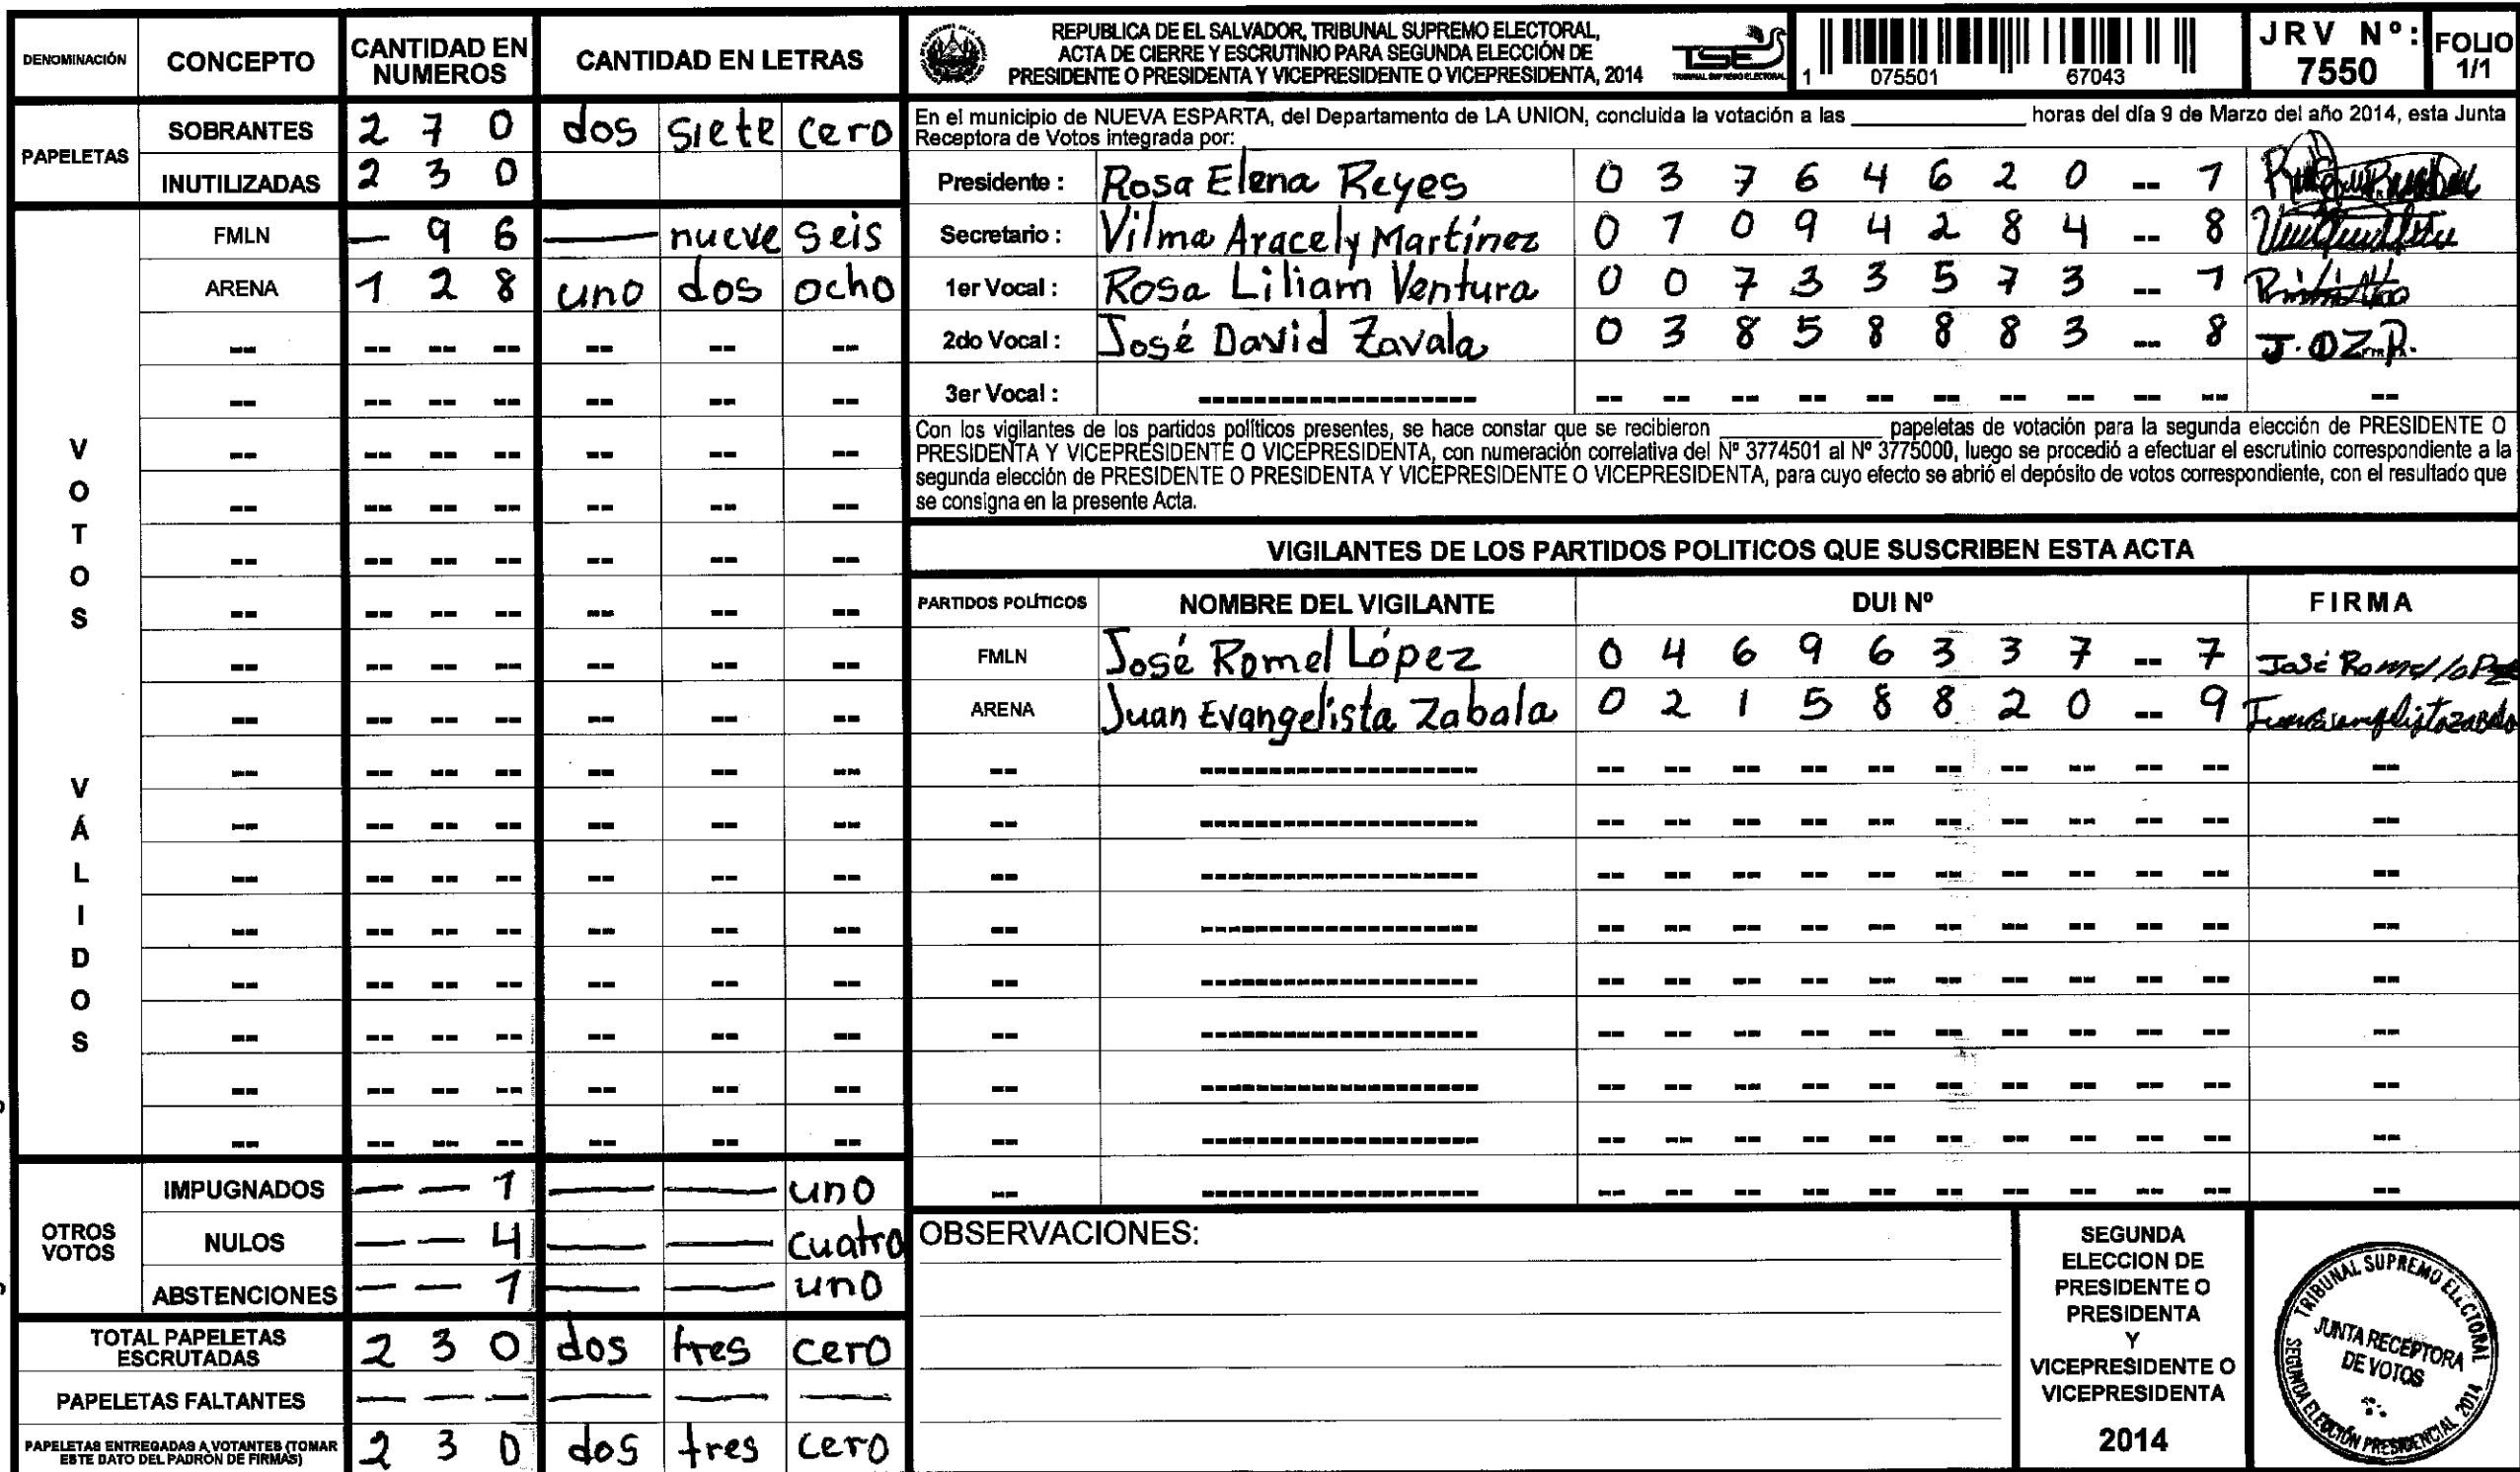 DENOMINACIÓN CONCEPTO CANTIDAD EN NUMEROS CANTIDAD EN LETRAS
PAPELETAS
SOBRANTES 2 7 0 dos siete cero
INUTILIZADAS 2 3 0
VOTOS VÁLIDOS
FMLN — 9 6 — nueve seis
ARENA 1 2 8 uno dos ocho
OTROS VOTOS
IMPUGNADOS — — 1 — — uno
NULOS — — 4 — — cuatro
ABSTENCIONES — — 1 — — uno
TOTAL PAPELETAS ESCRUTADAS 2 3 0 dos tres cero
PAPELETAS FALTANTES — — — — — —
PAPELETAS ENTREGADAS A VOTANTES (TOMAR ESTE DATO DEL PADRÓN DE FIRMAS) 2 3 0 dos tres cero
REPUBLICA DE EL SALVADOR, TRIBUNAL SUPREMO ELECTORAL,
ACTA DE CIERRE Y ESCRUTINIO PARA SEGUNDA ELECCIÓN DE
PRESIDENTE O PRESIDENTA Y VICEPRESIDENTE O VICEPRESIDENTA, 2014
TSE
TRIBUNAL SUPREMO ELECTORAL
1 075501 67043
JRV Nº: 7550
FOLIO 1/1
En el municipio de NUEVA ESPARTA, del Departamento de LA UNION, concluida la votación a las ____________ horas del día 9 de Marzo del año 2014, esta Junta
Receptora de Votos integrada por:
Presidente : Rosa Elena Reyes 0 3 7 6 4 6 2 0 -- 1
Secretario : Vilma Aracely Martínez 0 1 0 9 4 2 8 4 -- 8
1er Vocal : Rosa Liliam Ventura 0 0 7 3 3 5 7 3 -- 1
2do Vocal : José David Zavala 0 3 8 5 8 8 8 3 -- 8 J.DZ.R.
3er Vocal : -- -- -- -- -- -- -- -- -- -- --
Con los vigilantes de los partidos políticos presentes, se hace constar que se recibieron ____________ papeletas de votación para la segunda elección de PRESIDENTE O
PRESIDENTA Y VICEPRESIDENTE O VICEPRESIDENTA, con numeración correlativa del Nº 3774501 al Nº 3775000, luego se procedió a efectuar el escrutinio correspondiente a la
segunda elección de PRESIDENTE O PRESIDENTA Y VICEPRESIDENTE O VICEPRESIDENTA, para cuyo efecto se abrió el depósito de votos correspondiente, con el resultado que
se consigna en la presente Acta.
VIGILANTES DE LOS PARTIDOS POLITICOS QUE SUSCRIBEN ESTA ACTA
PARTIDOS POLÍTICOS NOMBRE DEL VIGILANTE DUI Nº FIRMA
FMLN José Romel López 0 4 6 9 6 3 3 7 -- 7 José Romel lopez
ARENA Juan Evangelista Zabala 0 2 1 5 8 8 2 0 -- 9
OBSERVACIONES:
SEGUNDA
ELECCION DE
PRESIDENTE O
PRESIDENTA
Y
VICEPRESIDENTE O
VICEPRESIDENTA
2014
TRIBUNAL SUPREMO ELECTORAL
JUNTA RECEPTORA
DE VOTOS
SEGUNDA ELECCIÓN PRESIDENCIAL 2014